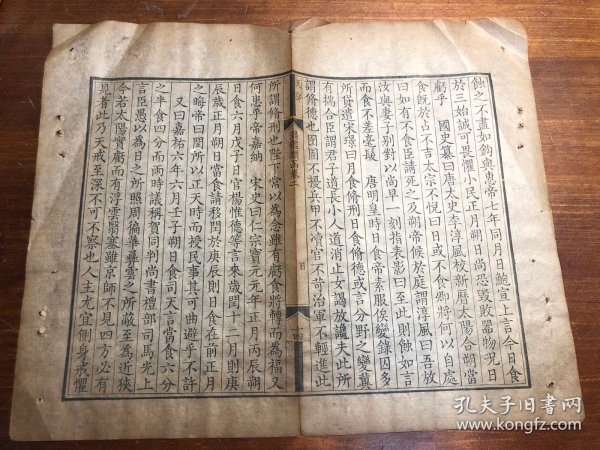 蝕之不盡如鉤與惠帝七年同月日鮑宣上言今日食
於三始誠可畏懼小民正月朔日尚恐毀敗器物況日
虧乎　國史纂曰唐太史李淳風校新曆太陽合朔當
食既於占不吉太宗不悅曰日或不食卿將何以自處
曰如有不食臣請死之及朔帝候於庭謂淳風曰吾放
汝與妻子別對以尚早　刻指表影曰至此則蝕如言
而食不差毫髮　唐明皇時日食帝素服俟變錄囚多
所貸遣宋璟曰月食脩刑日食脩德或言分野之變冀
有揣合臣謂君子道長小人道消止女謁放讒夫此所
謂脩德也囹圄不擾兵甲不瀆官不苛治軍不輕進此
卷二
四
所謂脩刑也陛下常以為念雖有虧食將轉而為福又
何患乎帝嘉納　宋史曰仁宗寶元元年正月丙辰朔
日食六月戊子日官楊惟德等言來歲閏十二月則庚
辰歲正月朔日當食請移閏於庚辰則日食在前正月
之晦帝曰閏所以正天時而授民事其可曲避乎不許
又曰嘉祐六年六月壬子朔日食司天言當食六分
之半食四分而雨時議稱賀同判尚書禮部司馬光上
言臣愚以為日之所照周徧華彝雲之所蔽至為近狹
今若太陽實虧而有浮雲翳塞雖京師不見四方必有
見者此乃天戒至深不可不察也人主尤宜側身戒懼
孔夫子旧书网
www.kongfz.com